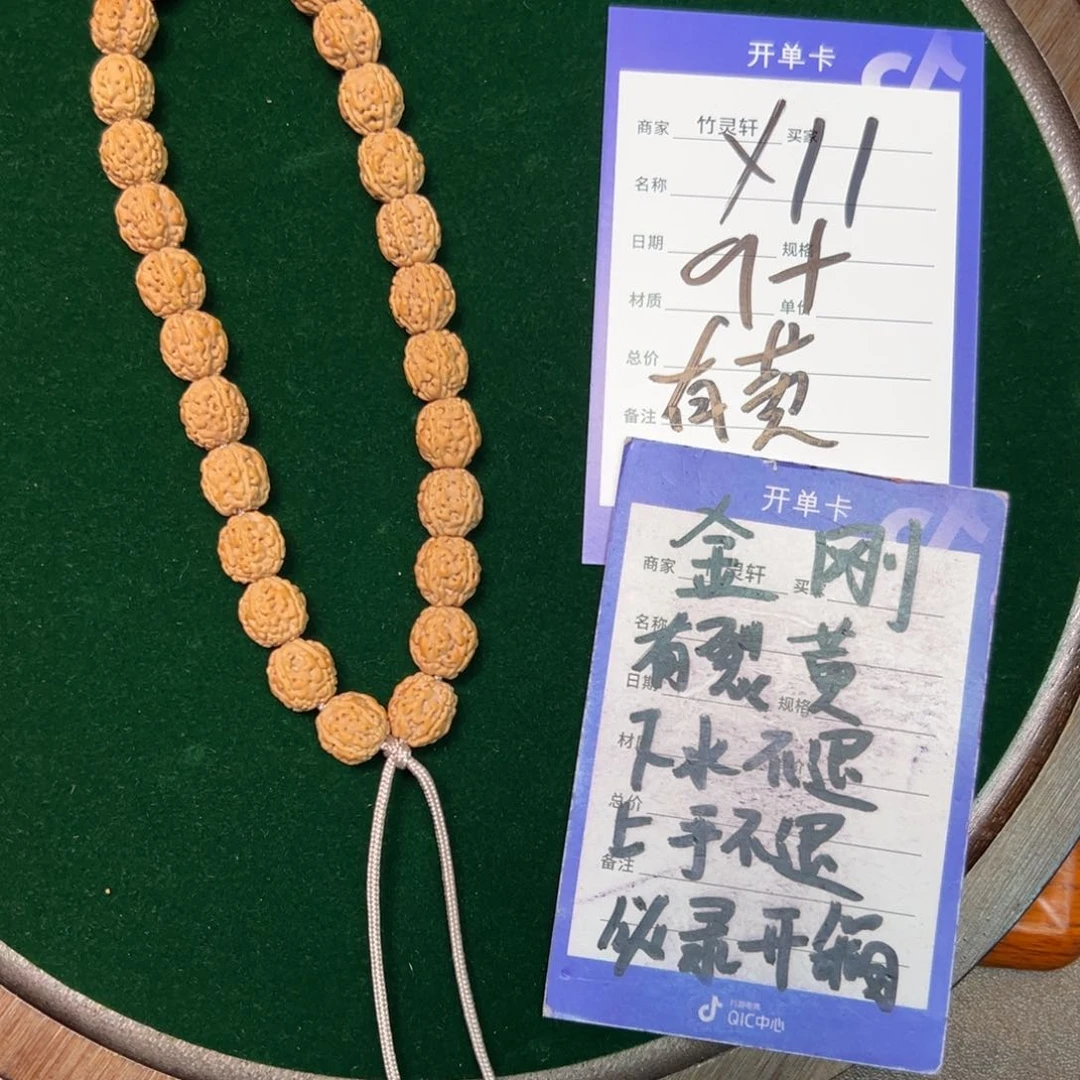 开单卡
商家 竹灵轩 买家
X11
名称
日期 规格
9+
材质 单价
总价
有黄
备注
开单卡
金刚
商家 灵轩 买
名称
有裂黄
日期 规格
下水不退
材
总价
上手不退
备注
必录开箱
抖音电商
QIC中心